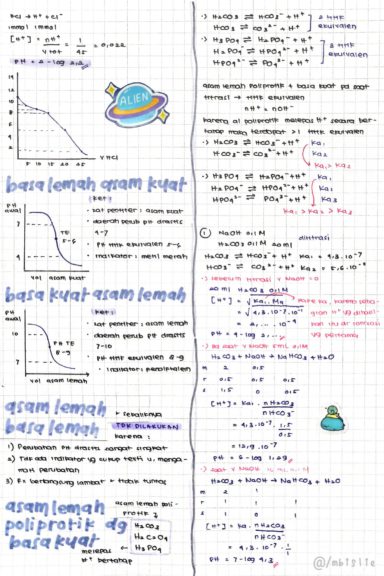 HCl → H⁺ + Cl⁻
1mmol 1mmol
[H⁺] = nH⁺/v tot = 1/45 = 0,022
PH = 2 - log 2,2
ALIEN
14
12
10
8
6
4
2
5 10 15 20 45
V HCl
basa lemah asam kuat
PH awal
7
4
TE 5-6
vol asam kuat
ket:
· zat peniter : asam kuat
· daerah perub pH drastis 4-7
· PH titik ekuivalen 5-6
· indikator : metil merah
basa kuat asam lemah
PH awal
10
7
PH TE 8-9
vol asam lemah
ket:
· zat peniter : asam lemah
· daerah perub pH drastis 7-10
· PH titik ekuivalen 8-9
· indikator : fenolftalein
asam lemah
basa lemah
sebaiknya
TDK DILAKUKAN
karena :
1) Perubahan PH drastis sangat singkat
2) Tdk ada indikator yg cukup teliti u/ mengamati perubahan
3) Rx berlangsung lambat & tidak tuntas
asam lemah
poliprotik dg
basa kuat
asam lemah poliprotik
H₂CO₃
H₂C₂O₄
H₃PO₄
melepas H⁺ bertahap
·) H₂CO₃ ⇌ HCO₃⁻ + H⁺
HCO₃⁻ ⇌ CO₃²⁻ + H⁺
2 titik ekuivalen
·) H₃PO₄ ⇌ H₂PO₄⁻ + H⁺
H₂PO₄⁻ ⇌ HPO₄²⁻ + H⁺
HPO₄²⁻ ⇌ PO₄³⁻ + H⁺
3 titik ekuivalen
asam lemah poliprotik + basa kuat pa saat
titrasi → titik ekuivalen
nH⁺ = nOH⁻
karena al poliprotik melepas H⁺ secara ber-
tahap maka terdapat >1 titik ekuivalen
·) H₂CO₃ ⇌ HCO₃⁻ + H⁺ Ka₁
HCO₃⁻ ⇌ CO₃²⁻ + H⁺ Ka₂
Ka₁ > Ka₂
·) H₃PO₄ ⇌ H₂PO₄⁻ + H⁺ Ka₁
H₂PO₄⁻ ⇌ HPO₄²⁻ + H⁺ Ka₂
HPO₄²⁻ ⇌ PO₄³⁻ + H⁺ Ka₃
Ka₁ > Ka₂ > Ka₃
① NaOH 0,1 M
H₂CO₃ 0,1M 20 ml
dititrasi
H₂CO₃ ⇌ HCO₃⁻ + H⁺ Ka₁ = 4,3.10⁻⁷
HCO₃⁻ ⇌ CO₃²⁻ + H⁺ Ka₂ = 5,6.10⁻¹¹
·) sebelum titrasi V NaOH = 0
20 ml H₂CO₃ 0,1M
[H⁺] = √Ka₁.Ma
= √4,3.10⁻⁷.10⁻¹
PH = 4 - log 2,...
·) pa saat V NaOH 5ml 0,1M
H₂CO₃ + NaOH → NaHCO₃ + H₂O
m 2 0,5
r 0,5 0,5 0,5 0,5
s 1,5 0 0,5
[H⁺] = Ka₁ . nH₂CO₃/nHCO₃⁻
= 4,3.10⁻⁷ . 1,5/0,5
= 12,9.10⁻⁷
PH = 6 - log 1,29
H₂CO₃ + NaOH → NaHCO₃ + H₂O
m 2 1
r 1 1 1
s 1 0 1
[H⁺] = Ka₁ . nH₂CO₃/nHCO₃⁻
= 4,3.10⁻⁷ . 1/1
PH = 7 - log 4,3